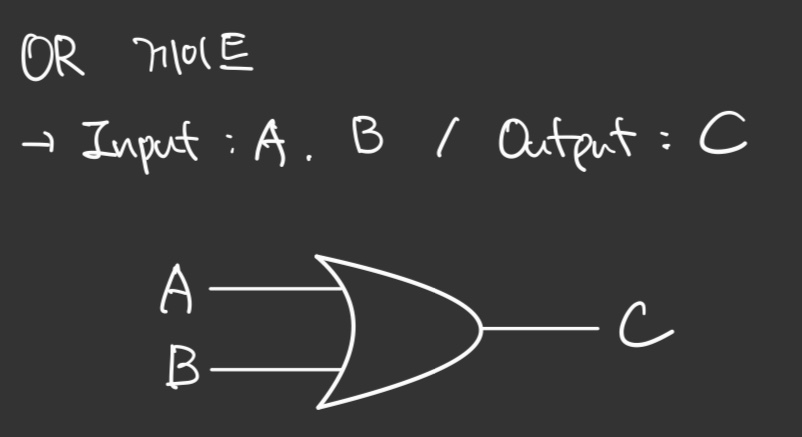 OR 게이트
→ Input : A, B / Output : C
A
B
C